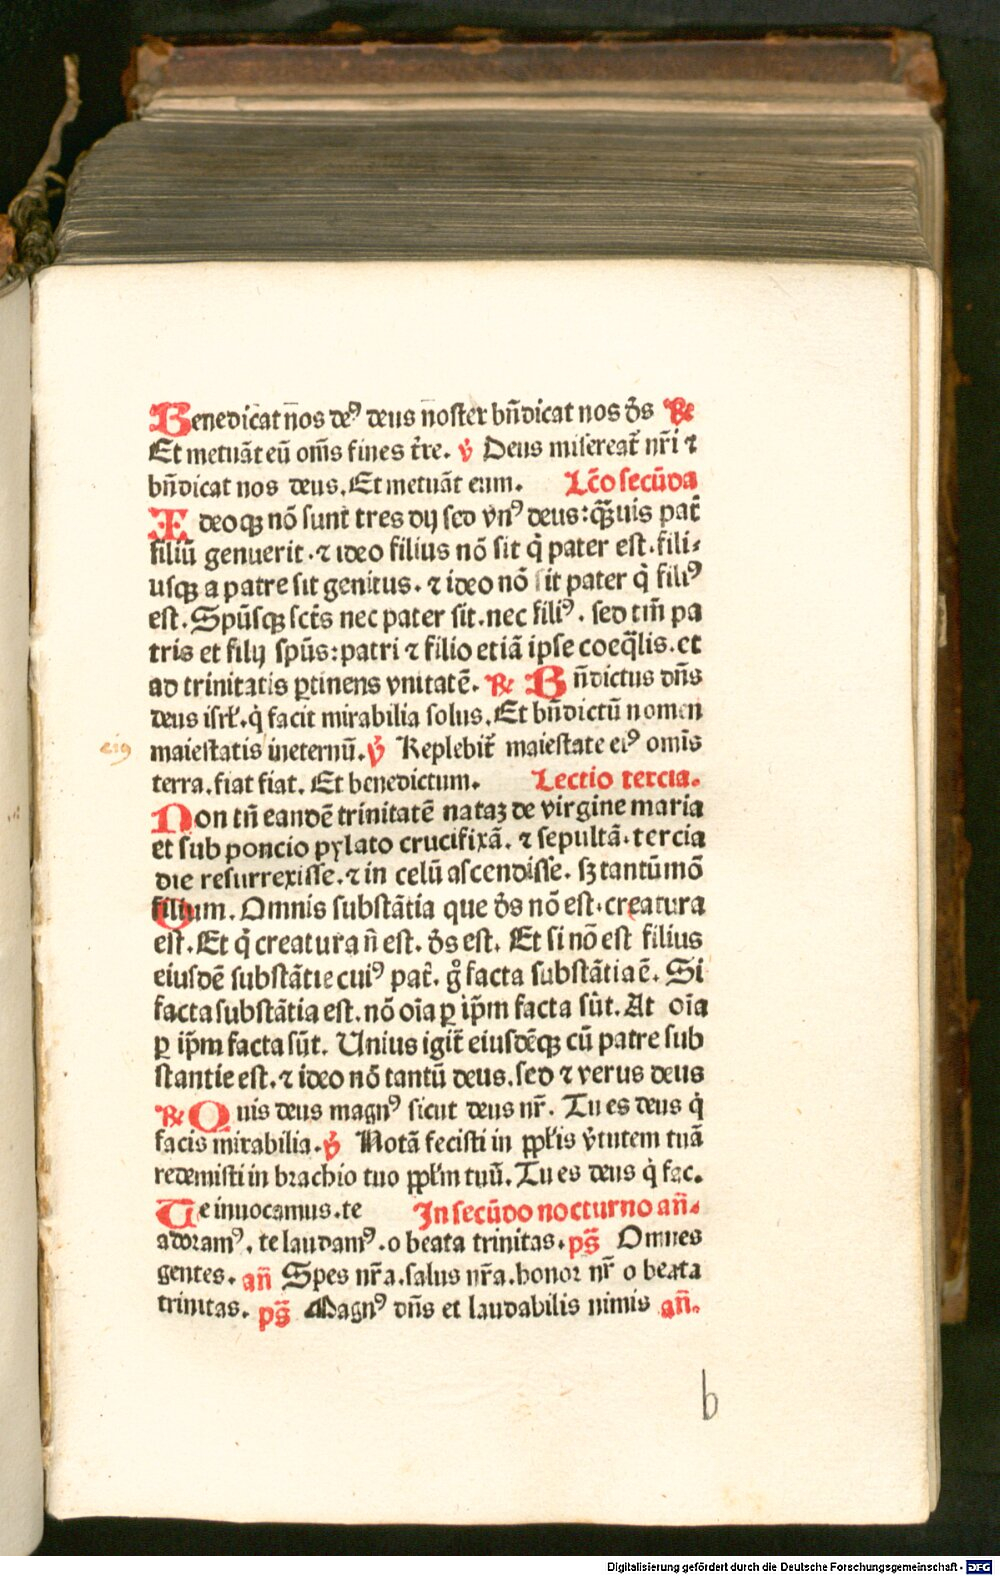 Benedicat nos deꝰ deus noster bñdicat nos ds̄ ℟
Et metuāt eū oms̄ fines tr̄e. ℣ Deus misereat̄ nr̄i ⁊
bñdicat nos deus. Et metuāt eum. Lc̄o secūda
Ideoqꝫ nō sunt tres dij sed vnꝰ deus: qꝫuis pat̄
filiū genuerit. ⁊ ideo filius nō sit q̇ pater est. fili⸗
usqꝫ a patre sit genitus. ⁊ ideo nō sit pater q̇ filiꝰ
est. Spūsqꝫ sct̄s nec pater sit. nec filiꝰ. sed tm̄ pa
tris et filij spūs: patri ⁊ filio etiā ipse coeq̄lis. et
ad trinitatis ꝑtinens vnitatē. ℟ Bñdictus dn̄s
deus isrl̄. q̇ facit mirabilia solus. Et bñdictū nomen
eiꝰ
maiestatis ineternū. ℣ Replebit̄ maiestate eiꝰ omīs
terra. fiat fiat. Et benedictum. Lectio tercia.
Non tn̄ eandē trinitatē nataꝫ de virgine maria
et sub poncio pylato crucifixā. ⁊ sepultā. tercia
die resurrexisse. ⁊ in celū ascendisse. sꝫ tantūmō
filium. Omnis substātia que ds̄ nō est. creatura
est. Et q̇ creatura n̄ est. ds̄ est. Et si nō est filius
eiusdē substātie cuiꝰ pat̄. gͦ facta substātia ē. Si
facta substātia est. nō oīa ꝑ ip̄m facta sūt. At oīa
ꝑ ip̄m facta sūt. Unius igit̄ eiusdēqꝫ cū patre sub
stantie est. ⁊ ideo nō tantū deus. sed ⁊ verus deus
℟ Quis deus magnꝰ sicut deus nr̄. Tu es deus q̇
facis mirabilia. ℣ Notā fecisti in ppl̄is v̄tutem tuā
redemisti in brachio tuo ppl̄m tuū. Tu es deus q̇ fac.
Te inuocamus. te In secūdo nocturno añ.
adoramꝰ. te laudamꝰ. o beata trinitas. ps̄ Omnes
gentes. añ Spes nr̄a. salus nr̄a. honor nr̄ o beata
trinitas. ps̄ Magnꝰ dn̄s et laudabilis nimis añ.
b
Digitalisierung gefördert durch die Deutsche Forschungsgemeinschaft - DFG